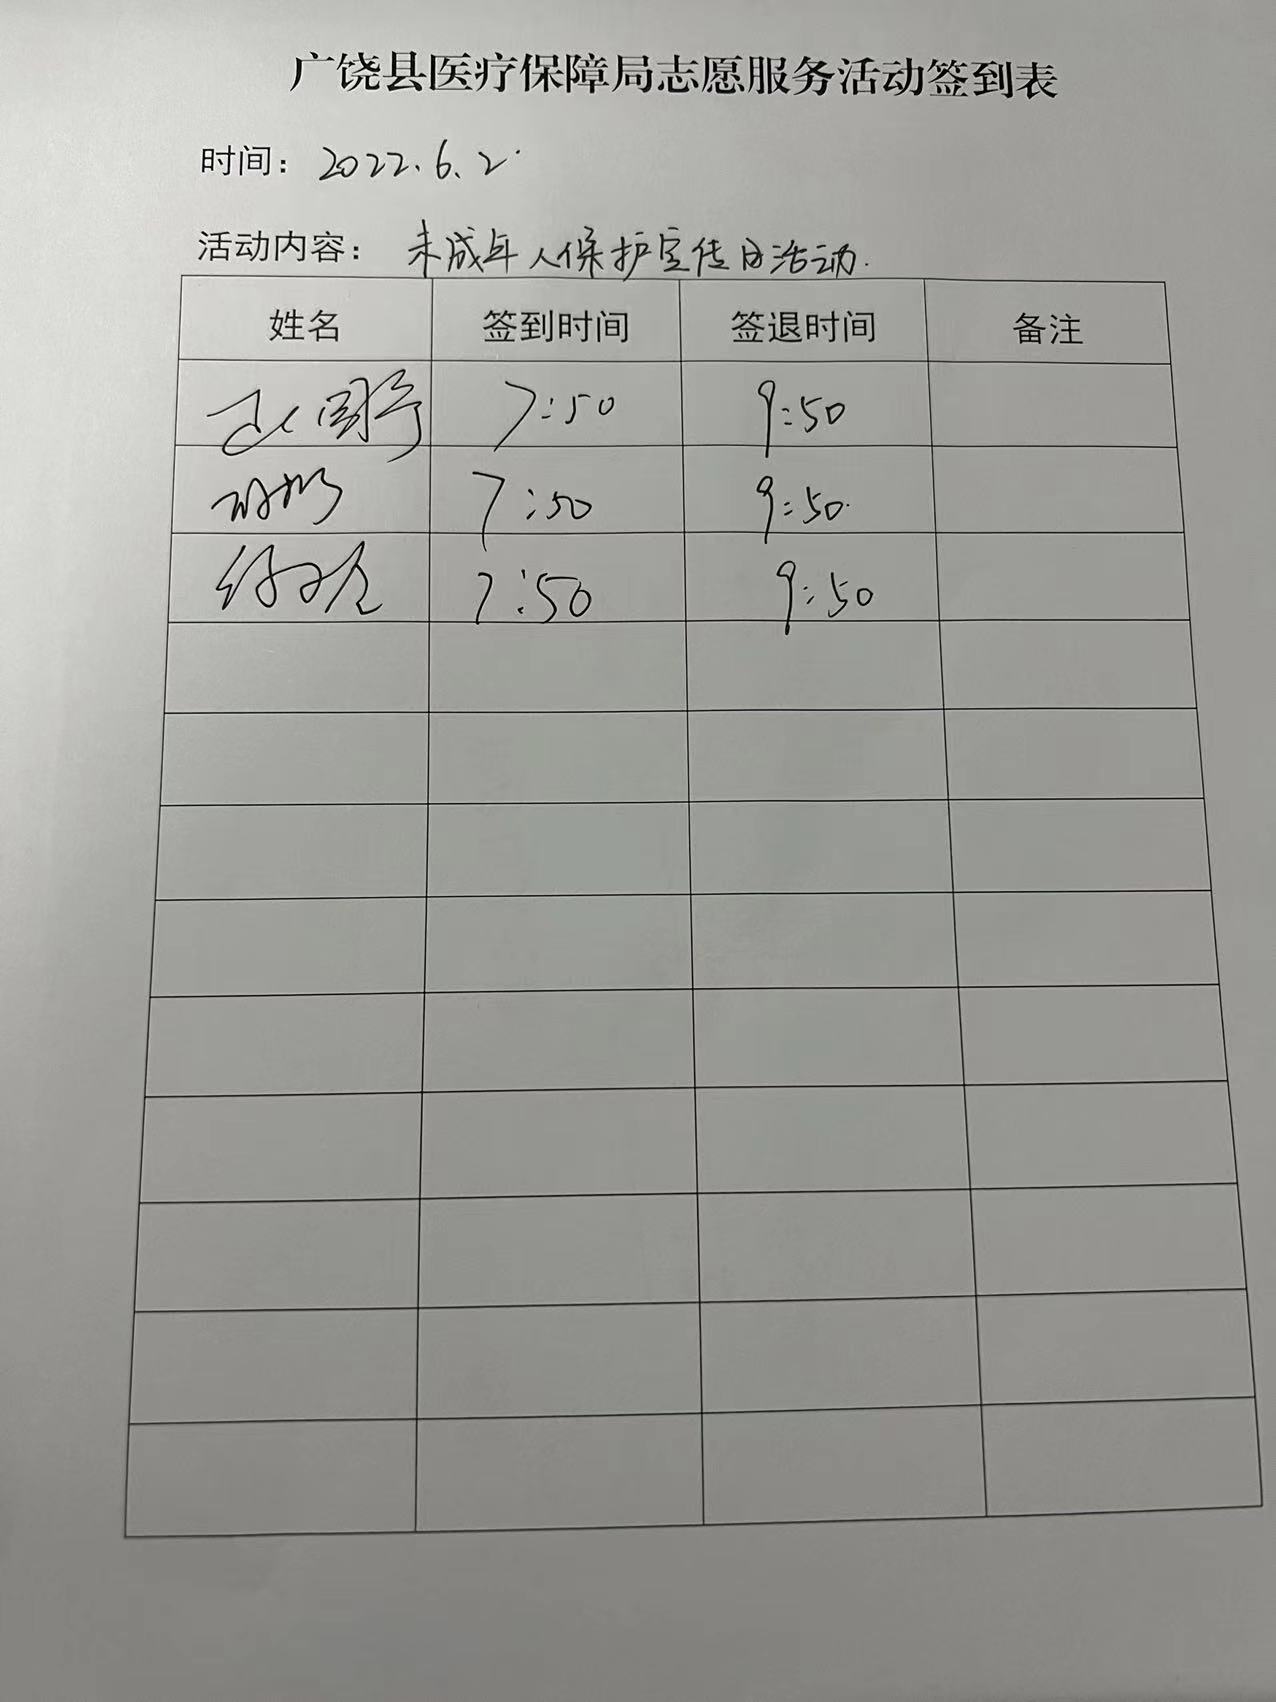 广饶县医疗保障局志愿服务活动签到表
时间：2022.6.2.
活动内容：未成年人保护宣传日活动.
姓名 签到时间 签退时间 备注
7:50 9:50
7:50 9:50.
7:50 9:50